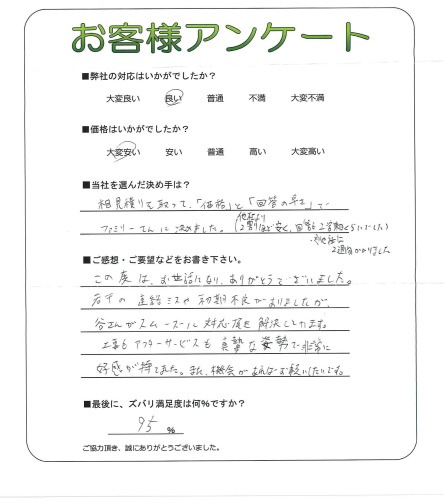 お客様アンケート
■弊社の対応はいかがでしたか?
大変良い 良い 普通 不満 大変不満
■価格はいかがでしたか?
大変安い 安い 普通 高い 大変高い
■当社を選んだ決め手は?
相見積りを取って、「価格」と「回答の早さ」で
ファミリーさんに決めました。(他社より
2割ほど安く、回答も
他社は
2週間かかりました
■ご感想・ご要望などをお書き下さい。
この度は、お世話になり、ありがとうございました。
若干の 連絡ミスや 初期不良がありましたが、
谷さんがスムーズに対応頂き 解決しています。
工事もアフターサービスも 真摯な姿勢で非常に
好感が持てました。また、機会があればお願いしたいです。
■最後に、ズバリ満足度は何%ですか?
95 %
ご協力頂き、誠にありがとうございました。